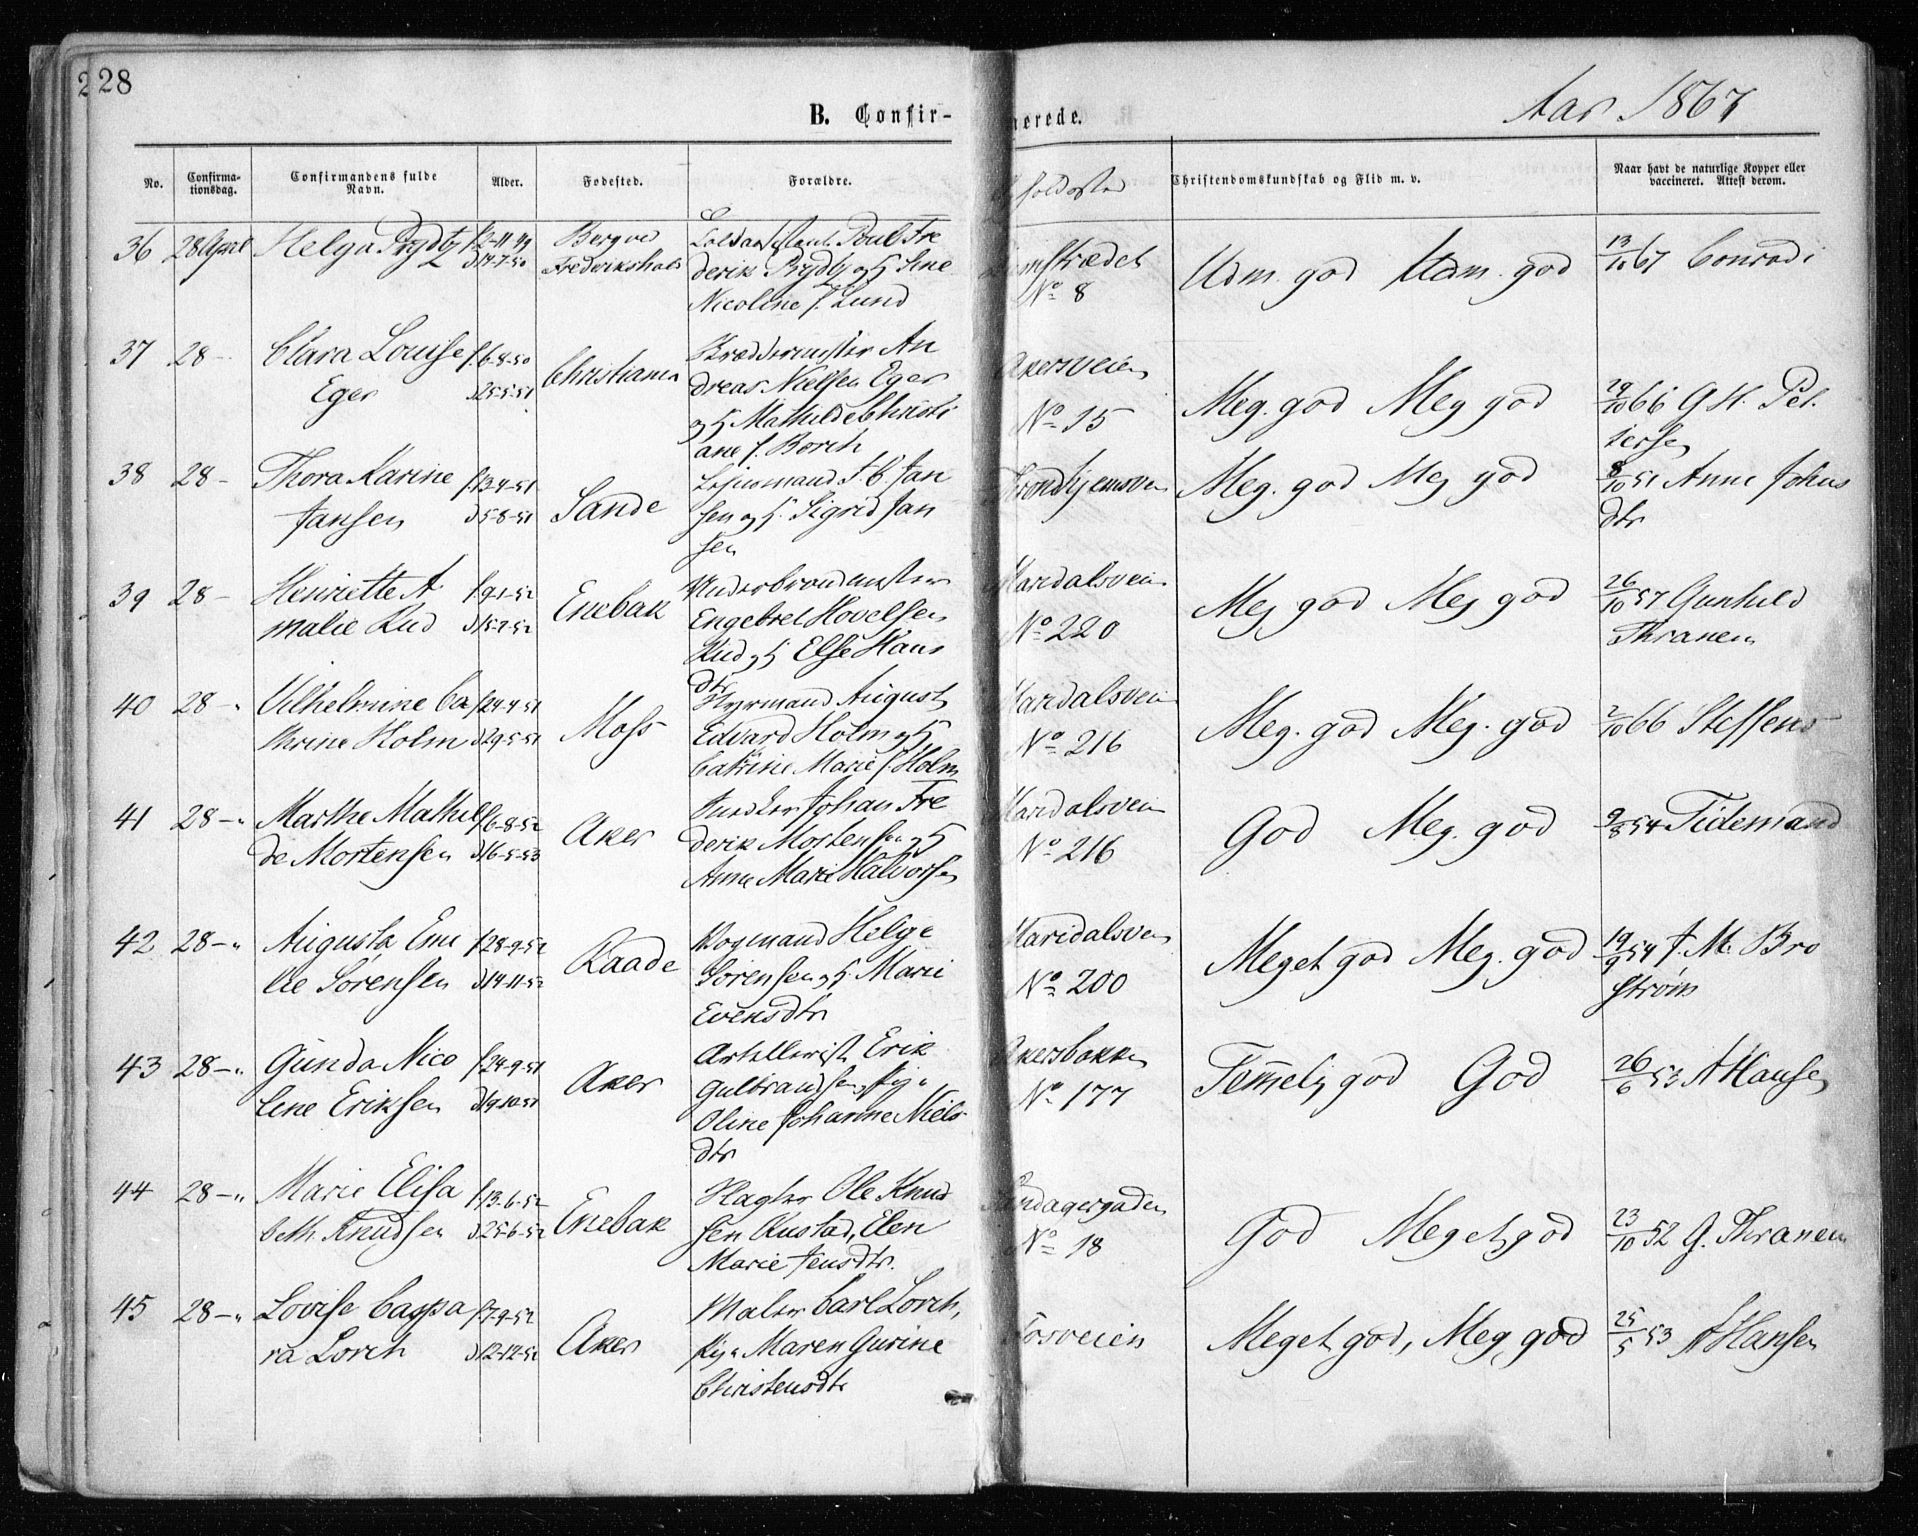 228
B. Confir-
merede.
Aar 1867
No.
Confirma-
tionsdag.
Confirmandens fulde
Navn.
Alder.
Fødested.
Forældre.
holdssted
Christendomskundskab og Flid m. v.
Naar havt de naturlige Kopper eller
vaccineret. Attest derom.
36 28 April Helga Prydtz f 2-11-49 Bergved Poul Fre No 8 Udm. god Udm. god 13/10 67 Conradi
d 14-7-50 Frederikshald derik Prydtz og H. Sine
Nicoline f. Lund
37 28 - Clara Louise f. 6-8-50 Christiania Bræddemester An Akersveien Meg. god Meg god 29/10 66 G H. Pet
Eger d 25-5-51 dreas Nielsen Eger No 15 tersen
og H Mathilde Christi
ane f. Borch
38 28 - Thora Karine f 13-4-51 Sande T. C. Jan Trondhjemsvei Meg. god Meg god 8/10 51 Anne Johns
Jansen d 5-8-51 sen og H. Sigrid Jan dtr
sen
39 28 - Henriette A f 9-1-52 Enebak Maridalsvei Meg god Meg god 26/10 57 Gunhild
malie Rud d 15-7-52 Engebret Hovelsen No 220 Thranem
Rud og H Else Hans
dtr
40 28 -" Vilhelmine Ca f 24-4-51 Moss Hyrmand August Maridalsvei Meg. god Meg. god 2/10 66 Steffens
thrine Holm d 29-5-51 Edvard Holm og H No 216
Catrine Marie f. Holm
41 28 -" Marthe Mathil f 6-8-52 Aker Snedker Johan Fre Maridalsvei God Meg. god 9/8 54 Tidemand
de Mortensen d 16-5-53 derik Mortensen og H No 216
Anne Marie Halvorsen
42 28 -" Augusta Emi f 28-9-52 Raade Vogmand Helge Maridalsvei Meget god Meg. god 19/9 54 J. M. Bro
lie Sørensen d 14-11-52 Sørensen og H. Marie No 200 strøm
Evensdtr
43 28 -" Gunda Nico f 24-9-51 Aker Artillerist Erik Akersbakken Temmelig god God 26/6 53 A Hansen
line Eriksen d 19-10-51 Gulbrandsen, Pige No 177
Oline Johanne Niels
dtr
44 28 -" Marie Elisa f 13-6-52 Enebak Slagter Ole Knud No 18 God Meget god 23/10 52 G. Thranem
beth Knudsen d 25-6-52 sen Rustad, Elen
Marie Jensdtr.
45 28 -" Lovise Caspa f 7-9-52 Aker Maler Carl Lorch, Fosveien Meget god, Meg. god 25/5 53 A Hansen
ra Lorch d 12-12-52 Pige Maren Gurine
Christensdtr